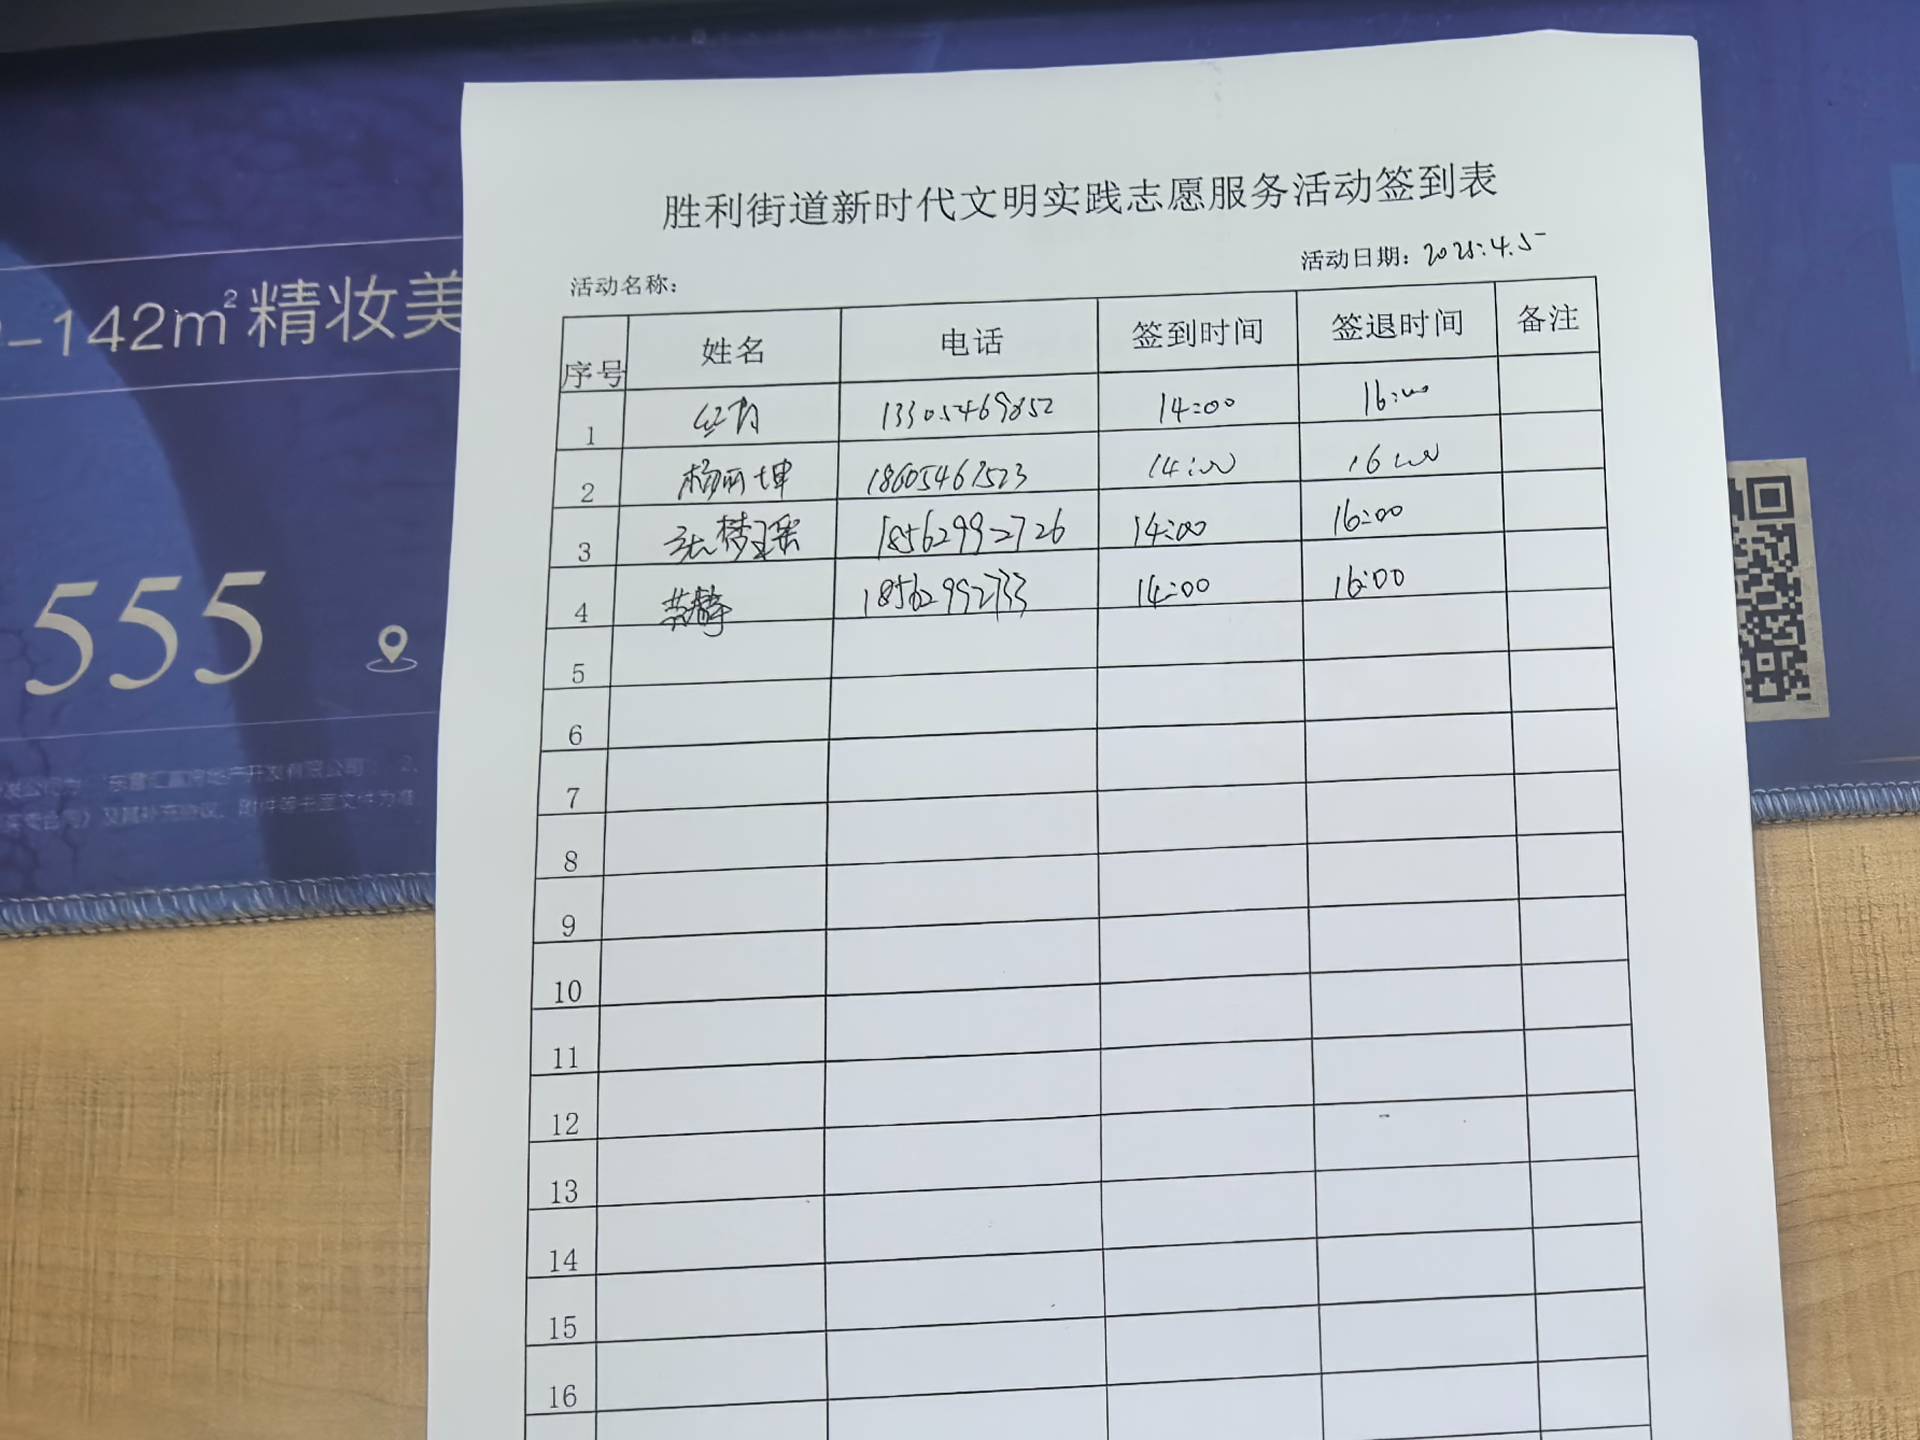 -142m²精妆美
555
胜利街道新时代文明实践志愿服务活动签到表
活动名称：
活动日期：2025.4.5
序号 姓名 电话 签到时间 签退时间 备注
1 13305469852 14:00 16:00
2 杨丽坤 18605461523 14:00 16:00
3 张梦瑶 18562992726 14:00 16:00
4 18562992733 14:00 16:00
5
6
7
8
9
10
11
12
13
14
15
16